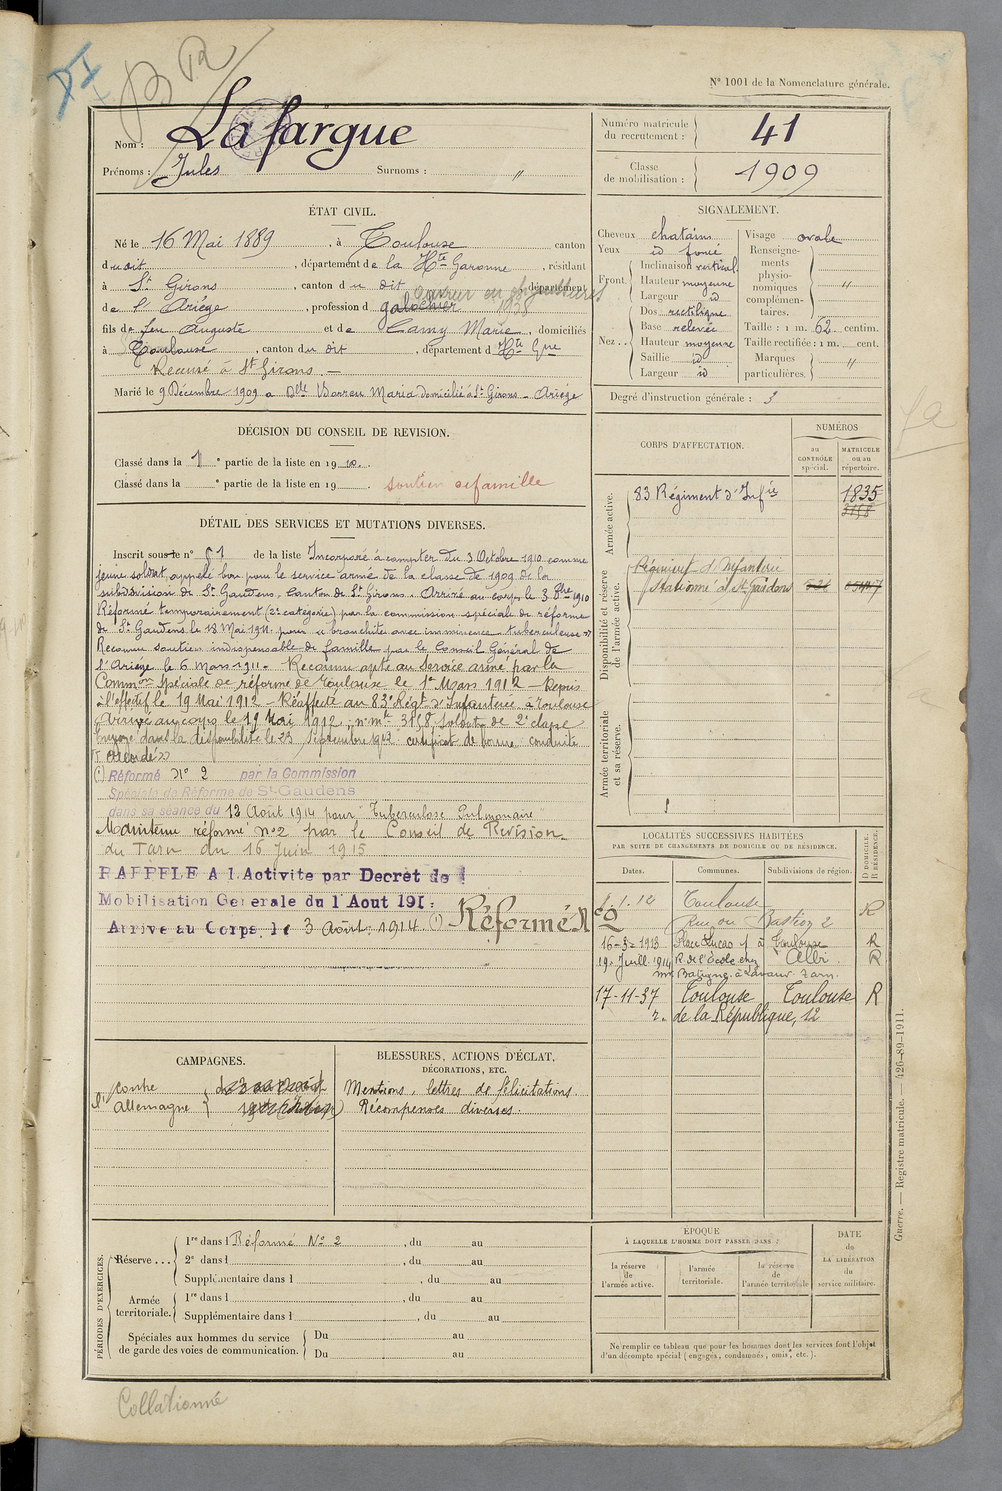 DI
N° 1001 de la Nomenclature générale.
Nom : Lafargue
Prénoms : Jules Surnoms : "
Numéro matricule du recrutement : 41
Classe de mobilisation : 1909
ÉTAT CIVIL.
Né le 16 Mai 1889, à Toulouse canton
du dit, département de la Hte Garonne, résidant
à St Girons, canton du dit, département
de l'Ariège, profession d galochier
ouvrier en 1938
fils de feu Auguste et de Camy Marie, domiciliés
à Toulouse, canton du dit, département d Hte Gne
Recensé à St Girons. —
Marié le 9 Décembre 1909 a Delle Barrau Maria domicilié à St Girons - Ariège
SIGNALEMENT.
Cheveux chatains
Yeux id foncé
Front. Inclinaison vertical
Hauteur moyenne
Largeur id
Nez.. Dos rectiligne
Base relevée
Hauteur moyenne
Saillie id
Largeur id
Visage ovale
Renseignements physionomiques complémentaires. "
Taille : 1 m. 62 centim.
Taille rectifiée : 1 m. cent.
Marques particulières. "
Degré d'instruction générale : 3
DÉCISION DU CONSEIL DE REVISION.
Classé dans la 1e partie de la liste en 1910.
Classé dans la e partie de la liste en 19 soutien de famille
DÉTAIL DES SERVICES ET MUTATIONS DIVERSES.
Inscrit sous le n° 51 de la liste Incorporé à compter du 3 Octobre 1910 comme
jeune soldat, appelé bon pour le service armé de la classe de 1909 de la
subdivision de St Gaudens, Canton de St Girons. Arrivé au corps le 3 8bre 1910
Réformé temporairement (2e catégorie) par la commission spéciale de réforme
de St Gaudens le 18 Mai 1911 pour "bronchite avec imminence tuberculeuse"
Reconnu soutien indispensable de famille par le Conseil Général de
l'Ariège le 6 Mars 1911. Reconnu apte au Service armé par la
Common Spéciale de réforme de Toulouse le 1er Mars 1912 — Depuis
à l'effectif le 19 Mai 1912 - Réaffecté au 83e Régt d'Infanterie à Toulouse
Arrivé au corps le 19 Mai 1912, n° mle 3158 Soldat de 2e classe
Envoyé dans la disponibilité le 23 Septembre 1912 certificat de bonne conduite
"Accordé"
(1) Réformé N° 2 par la Commission
Spéciale de Réforme de St-Gaudens
dans sa séance du 12 Août 1914 pour Tuberculose Pulmonaire
Maintenu réformé n°2 par le Conseil de Révision
du Tarn du 16 Juin 1915
RAPPELÉ A l'Activité par Décret de
Mobilisation Générale du 1 Aout 191
Arrivé au Corps le 3 Août 1914 (1) Réformé N° 2
CORPS D'AFFECTATION.
NUMÉROS
au CONTRÔLE spécial.
MATRICULE ou au répertoire.
Armée active.
83 Régiment d'Infie 1835
3158
Disponibilité et réserve de l'armée active.
Régiment d'Infanterie
stationné à St Gaudens
Armée territoriale et sa réserve.
LOCALITÉS SUCCESSIVES HABITÉES
PAR SUITE DE CHANGEMENTS DE DOMICILE OU DE RÉSIDENCE.
Dates. Communes. Subdivisions de région. D DOMICILE. R RÉSIDENCE.
1.12 Toulouse R
Rue du Bastion 2
16-3-1913 Place Lucas 1 à Toulouse R
19 Juill. 1914 R. de l'École chez Albi R
à Lavaur Tarn.
17-11-37 Toulouse Toulouse R
r. de la République, 12
CAMPAGNES.
contre l'Allemagne
BLESSURES, ACTIONS D'ÉCLAT,
DÉCORATIONS, ETC.
Mentions, lettres de félicitations.
Récompenses diverses.
PÉRIODES D'EXERCICES.
Réserve... 1re dans l Réformé N° 2, du au
2e dans l, du au
Supplémentaire dans l, du au
Armée territoriale. 1re dans l, du au
Supplémentaire dans l, du au
Spéciales aux hommes du service de garde des voies de communication. Du au
Du au
ÉPOQUE
À LAQUELLE L'HOMME DOIT PASSER DANS :
la réserve de l'armée active.
l'armée territoriale.
la réserve de l'armée territoriale
DATE de LA LIBÉRATION du service militaire.
Ne remplir ce tableau que pour les hommes dont les services font l'objet
d'un décompte spécial (engagés, condamnés, omis, etc.).
Guerre. — Registre matricule. — 426-89-1911.
Collationné